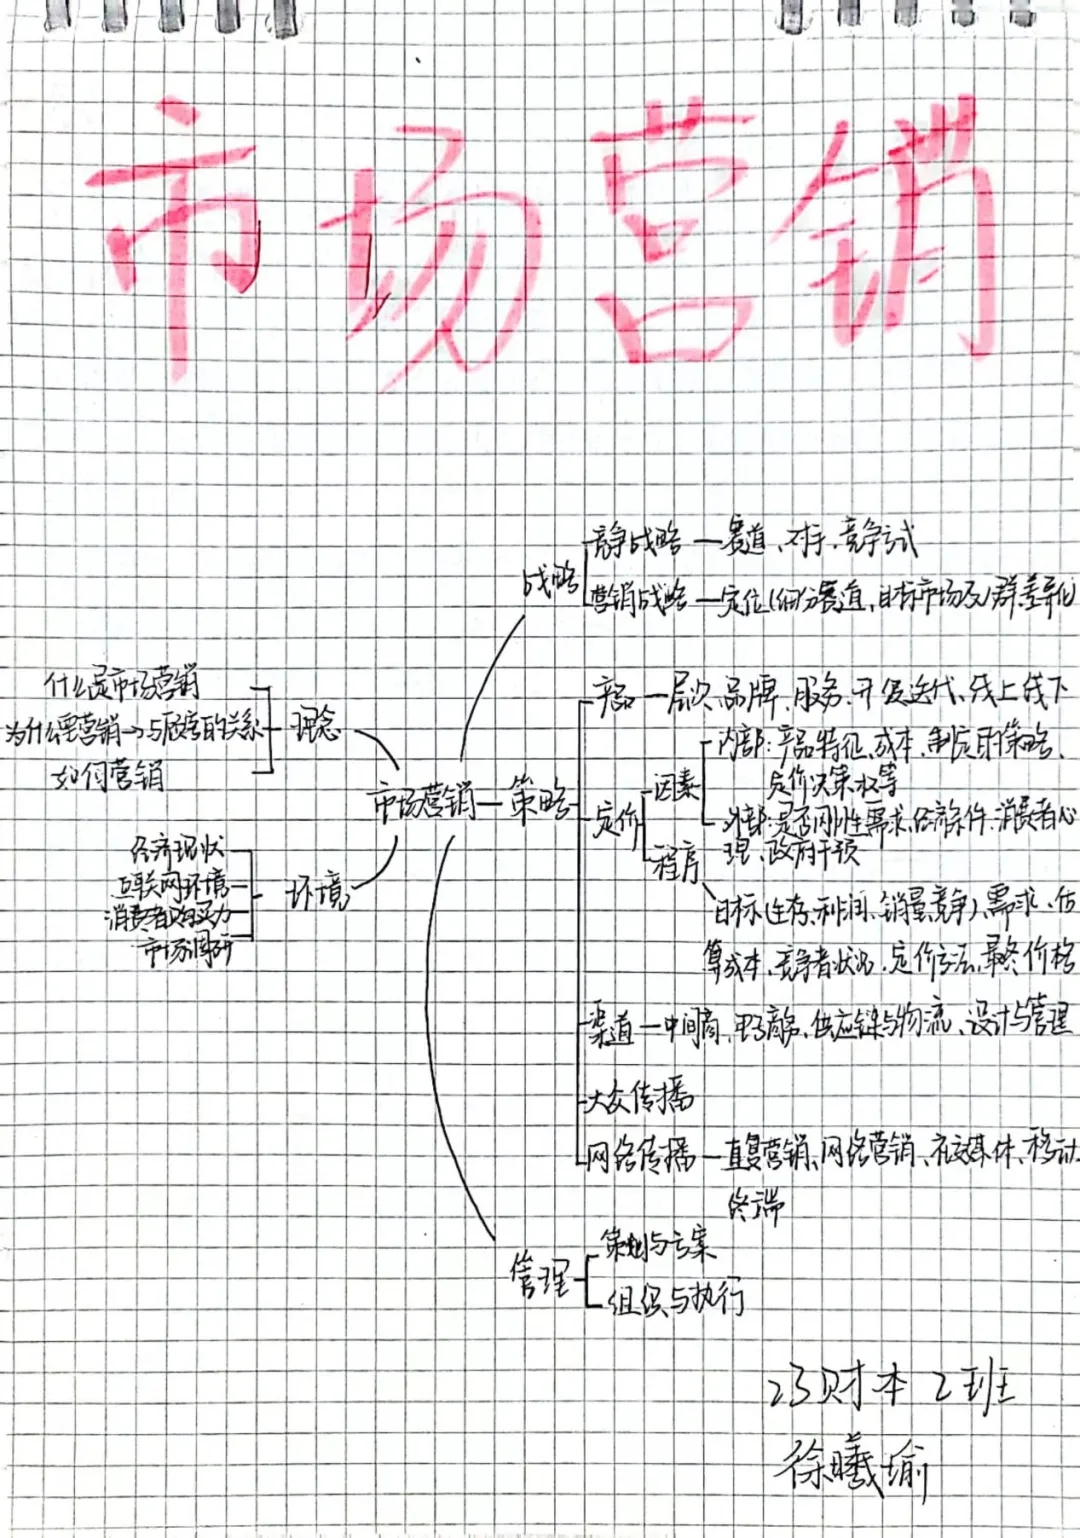 市场营销
竞争战略—赛道、对手、竞争方式
战略
营销战略—定位(细分赛道、目标市场及人群、差异化
什么是市场营销
为什么要营销→与顾客的关系
如何营销
理念
产品—层次、品牌、服务、开发迭代、线上线下
内部:产品特征、成本、制度目标策略、
定价决策权等
因素
市场营销—策略
定价
外部:是否刚性需求、经济条件、消费者心
理、政府干预
程序
经济现状
互联网环境
消费者购买力
市场调研
环境
目标(生存、利润、销量、竞争)、需求、估
算成本、竞争者状况、定价方法、最终价格
渠道—中间商、电子商务、供应链与物流、设计与管理
大众传播
网络传播—直复营销、网络营销、社交媒体、移动
终端
策划与方案
管理
组织与执行
23财本2班
徐曦瑜